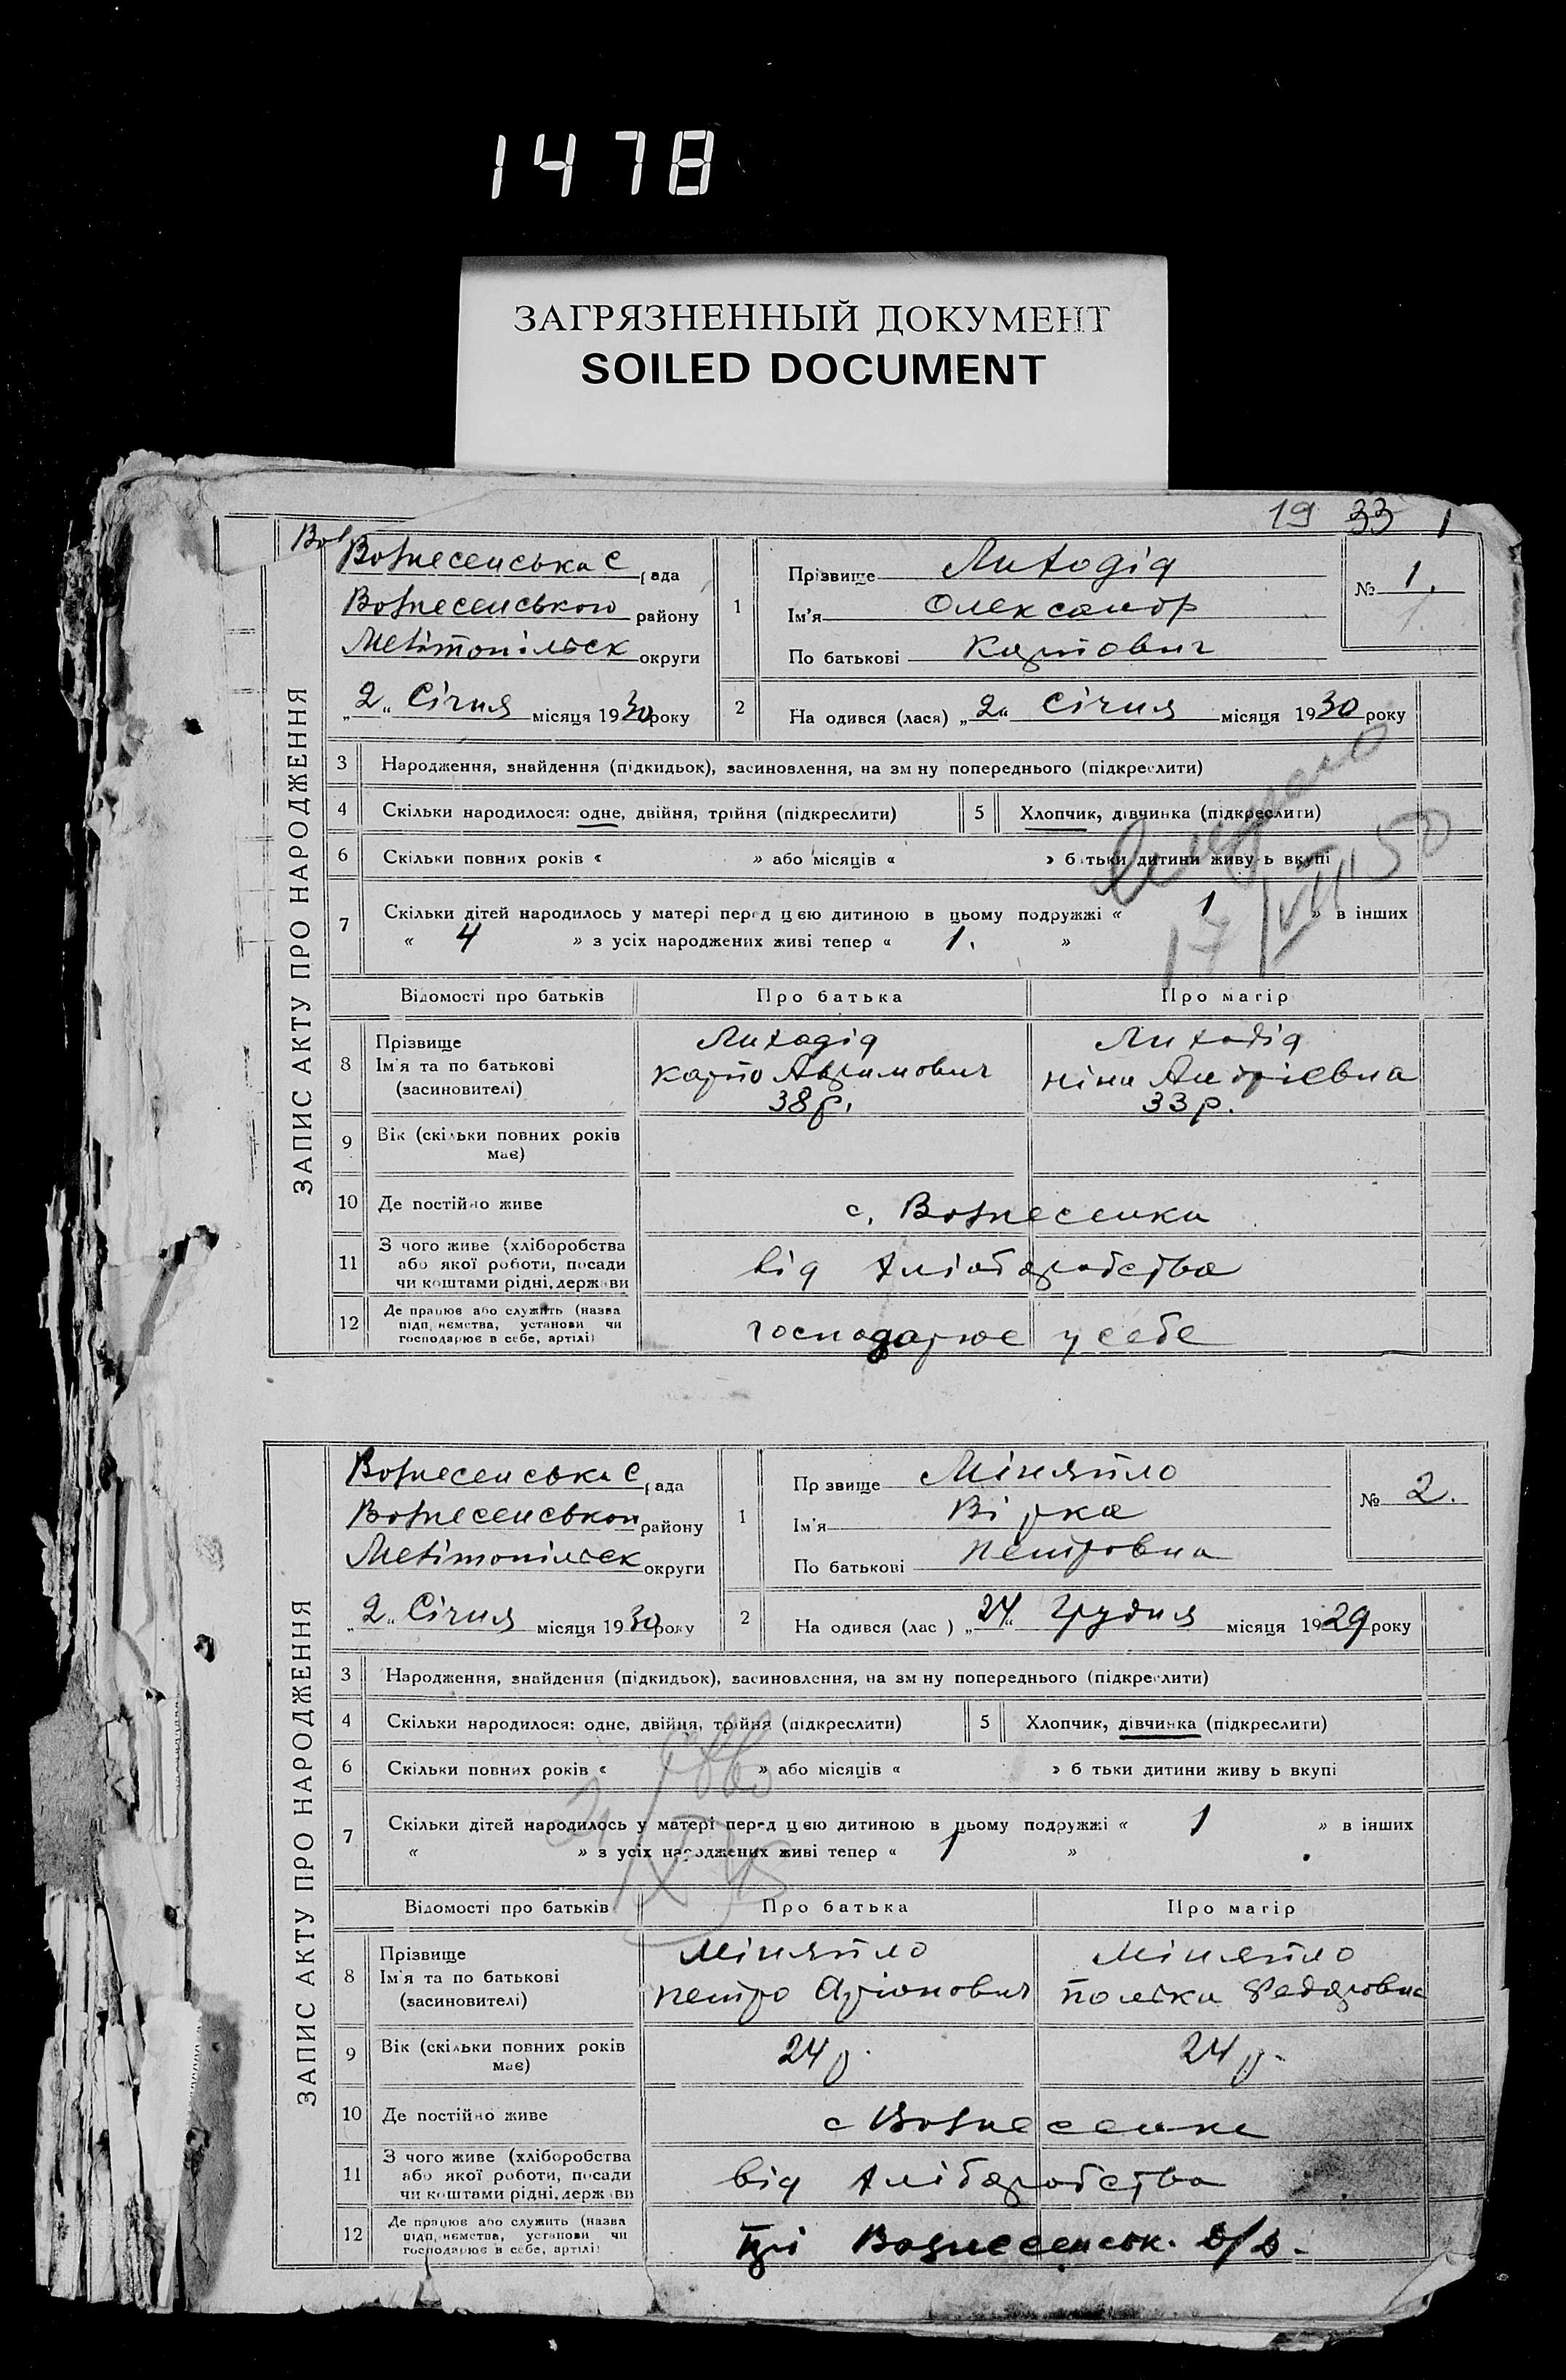 1478
ЗАГРЯЗНЕННЫЙ ДОКУМЕНТ
SOILED DOCUMENT
19 33 1
ЗАПИС АКТУ ПРО НАРОДЖЕННЯ
Вознесенська с рада
Вознесенського району
Мелітопільськ округи
„2" Січня місяця 1930 року
1 Прізвище Лиходід
Ім'я Олександр
По батькові Карпович
№ 1.
2 На одився (лася) „2" Січня місяця 1930 року
3 Народження, знайдення (підкидьок), засиновлення, на зм ну попереднього (підкреслити)
4 Скільки народилося: одне, двійня, трійня (підкреслити) 5 Хлопчик, дівчинка (підкреслити)
6 Скільки повних років « » або місяців « » б тьки дитини живу ь вкупі
7 Скільки дітей народилось у матері перед цією дитиною в цьому подружжі « 1 » в інших
« 4 » з усіх народжених живі тепер « 1. »
17/VII 50
Відомості про батьків Про батька Про матір
8 Прізвище
Ім'я та по батькові
(засиновителі)
Лиходід
Карпо Авримович
38 р.
Лиходід
Ніна Андрієвна
33 р.
9 Вік (скільки повних років має)
10 Де постійно живе с. Вознесенка
11 З чого живе (хліборобства
або якої роботи, посади
чи коштами рідні, держ ви
від хліборобства
12 Де працює або служить (назва
підп иємства, установи чи
господарює в себе, артілі)
господарює у себе
ЗАПИС АКТУ ПРО НАРОДЖЕННЯ
Вознесенська с рада
Вознесенськог району
Мелітопільськ округи
„2" Січня місяця 1930 року
1 Пр звище Міняйло
Ім'я Вірка
По батькові Петровна
№ 2.
2 На одився (лас ) „24" Грудня місяця 1929 року
3 Народження, знайдення (підкидьок), засиновлення, на зм ну попереднього (підкреслити)
4 Скільки народилося: одне, двійня, трійня (підкреслити) 5 Хлопчик, дівчинка (підкреслити)
6 Скільки повних років « » або місяців « » б тьки дитини живу ь вкупі
7 Скільки дітей народилось у матері перед цією дитиною в цьому подружжі « 1 » в інших
« » з усіх народжених живі тепер « 1 »
Відомості про батьків Про батька Про матір
8 Прізвище
Ім'я та по батькові
(засиновителі)
Міняйло
Петро Аріонович
Міняйло
Полька Федоровна
9 Вік (скільки повних років має) 24 р. 24 р.
10 Де постійно живе с Вознесенка
11 З чого живе (хліборобства
або якої роботи, посади
чи коштами рідні, держ ви
від хліборобства
12 Де працює або служить (назва
підп иємства, установи чи
господарює в себе, артілі)
при Вознесенськ.